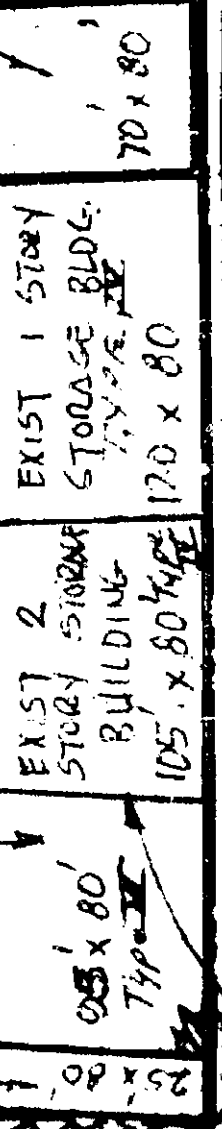 70' x 80
EXIST 1 STORY
STORAGE BLDG.
TYPE IV
120 x 80
EXIST 2
STORY STORAGE
BUILDING
105' x 80 Type IV
x 80'
Type IV
25' x 80'